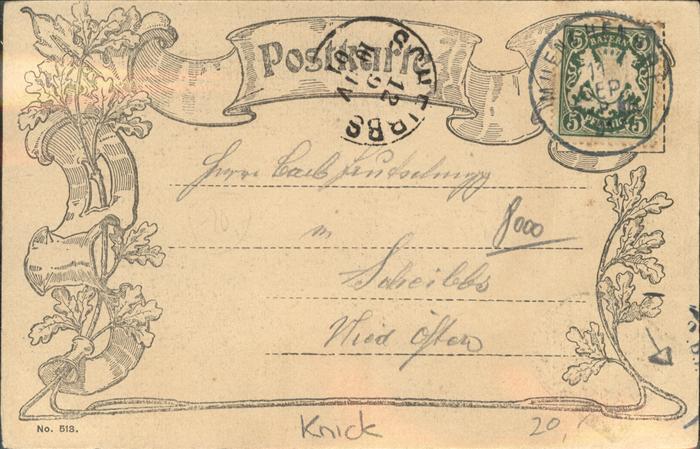 Postkarte
SCHEIBBS
12
5
BAYERN
5
5
PFENNIG
5
Herrn Carl
in
8000
Scheibbs
Nied Östen
No. 513.
Knick
20,